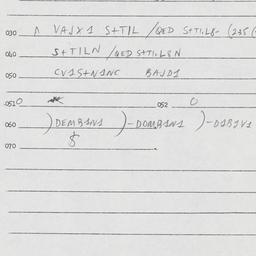 030 Λ VAJX1 S+TIL /QED S+TI.L8- (235(
040 S+TILN /QED S+TI.L8N
050 CV1S+N1NC BAJD1
.051 0 052 0
060 )DEMB1N1 )-DOMB1N1 )-D1B1V1
8
070